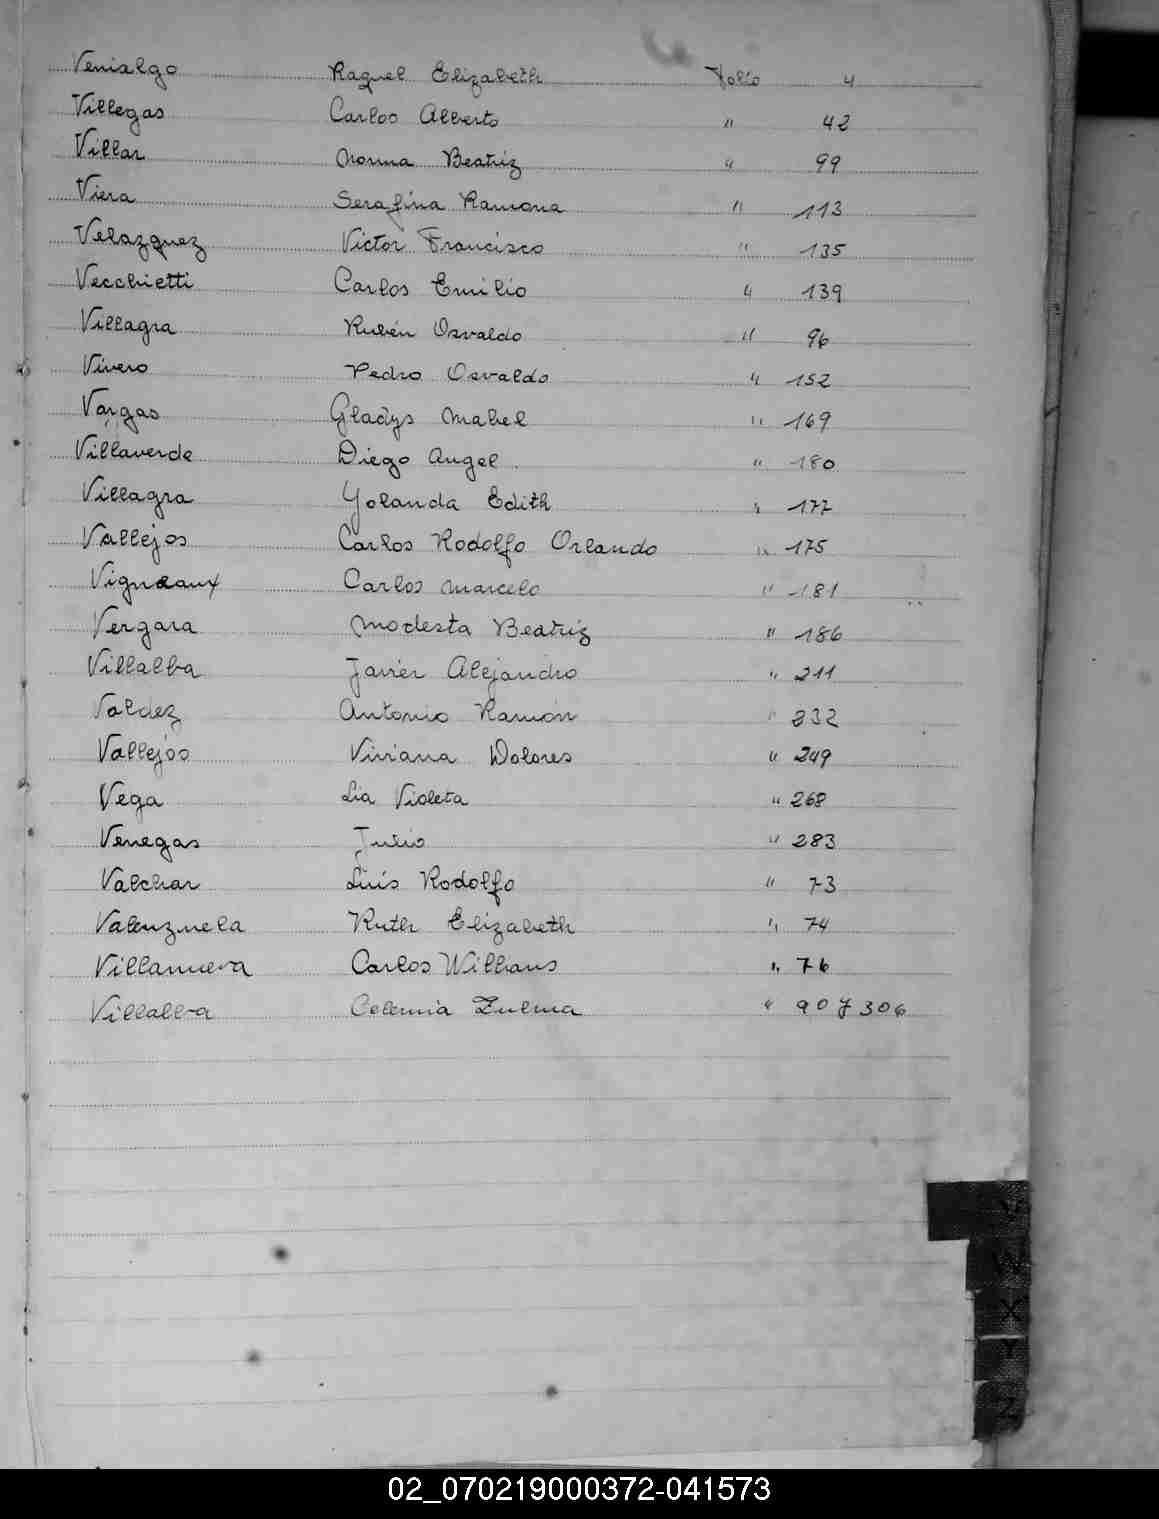 Venialgo Raquel Elizabeth Folio 4
Villegas Carlos Alberto " 42
Villar Norma Beatriz " 99
Viera Serafina Ramona " 113
Velazquez Victor Francisco " 135
Vecchietti Carlos Emilio " 139
Villagra Rubén Osvaldo " 96
Vivero Pedro Osvaldo " 152
Vargas Gladys Mabel " 169
Villaverde Diego Angel " 180
Villagra Yolanda Edith " 177
Vallejos Carlos Rodolfo Orlando " 175
Vigneaux Carlos Marcelo " 181
Vergara Modesta Beatriz " 186
Villalba Javier Alejandro " 211
Valdez Antonio Ramón " 232
Vallejos Viviana Dolores " 249
Vega Lia Violeta " 268
Venegas Julio " 283
Valchar Luis Rodolfo " 73
Valenzuela Ruth Elizabeth " 74
Villanueva Carlos Willians " 76
Villalba Celemia Zulma " 90 y 306
V
W
X
Y
Z
02_070219000372-041573